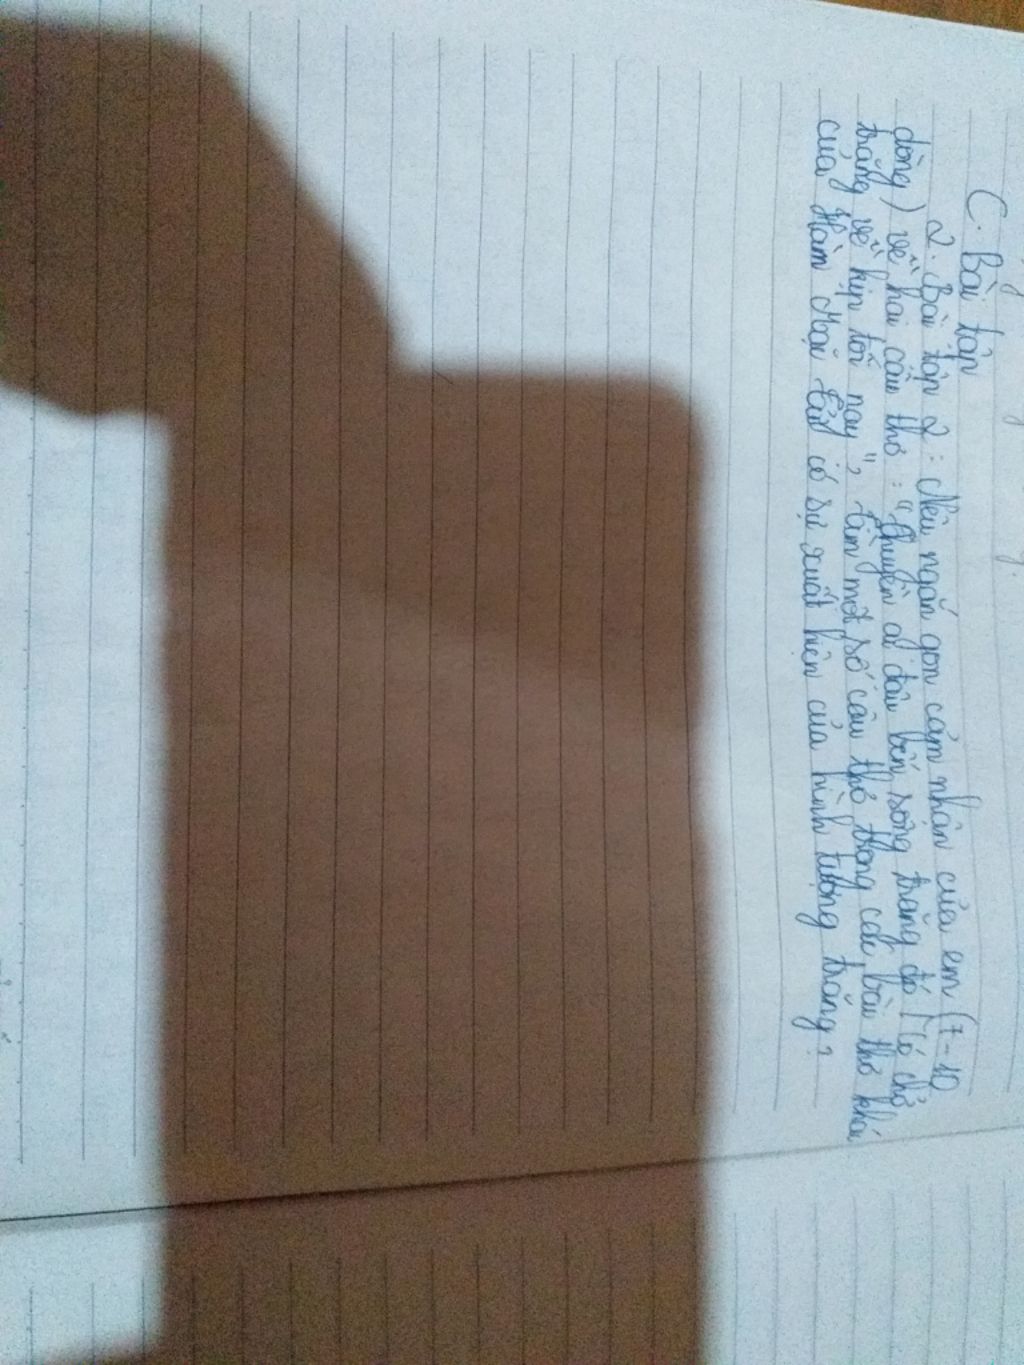 C. Bài tập
2. Bài tập 2: Nêu ngắn gọn cảm nhận của em (7-10
dòng) về hai câu thơ: "Thuyền ai đậu bến sông trăng đó / Có chở
trăng về kịp tối nay", tìm một số câu thơ trong các bài thơ khác
của Hàn Mặc Tử có sự xuất hiện của hình tượng trăng?